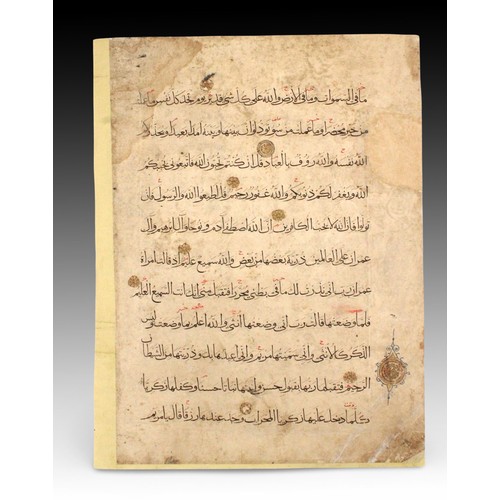 ما في السموات وما في الأرض والله على كل شي قدير يوم تجد كل نفس ما عملت
من خير محضرا وما عملت من سوء تود لو أن بينها وبينه أمدا بعيدا ويحذركم
الله نفسه والله روف بالعباد قل إن كنتم تحبون الله فاتبعوني يحببكم
الله ويغفر لكم ذنوبكم والله غفور رحيم قل أطيعوا الله والرسول فإن
تولوا فإن الله لا يحب الكافرين إن الله اصطفى آدم ونوحا وآل إبرهيم وآل
عمران على العالمين ذرية بعضها من بعض والله سميع عليم إذ قالت امرأة
عمران رب إني نذرت لك ما في بطني محررا فتقبل مني إنك أنت السميع العليم
فلما وضعتها قالت رب إني وضعتها أنثى والله أعلم بما وضعت وليس
الذكر كالأنثى وإني سميتها مريم وإني أعيذها بك وذريتها من الشيطان
الرجيم فتقبلها ربها بقبول حسن وأنبتها نباتا حسنا وكفلها زكريا
كلما دخل عليها زكريا المحراب وجد عندها رزقا قال يا مريم